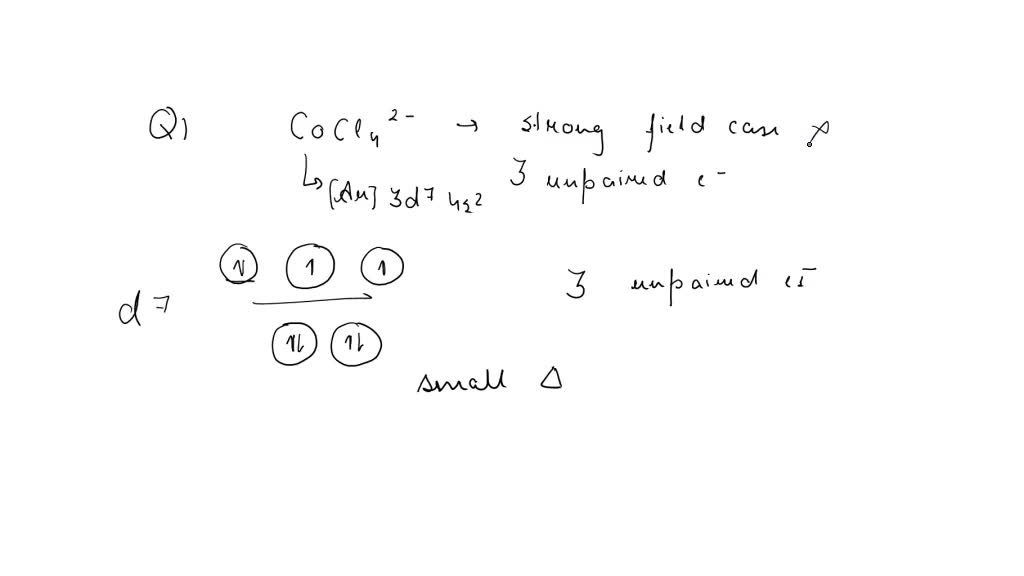 Q1 CoCl4 2- → strong field case x
↳ [Ar] 3d7 4s2 3 unpaired e-
1 1 1
d7 3 unpaired e-
1l 1l
small Δ